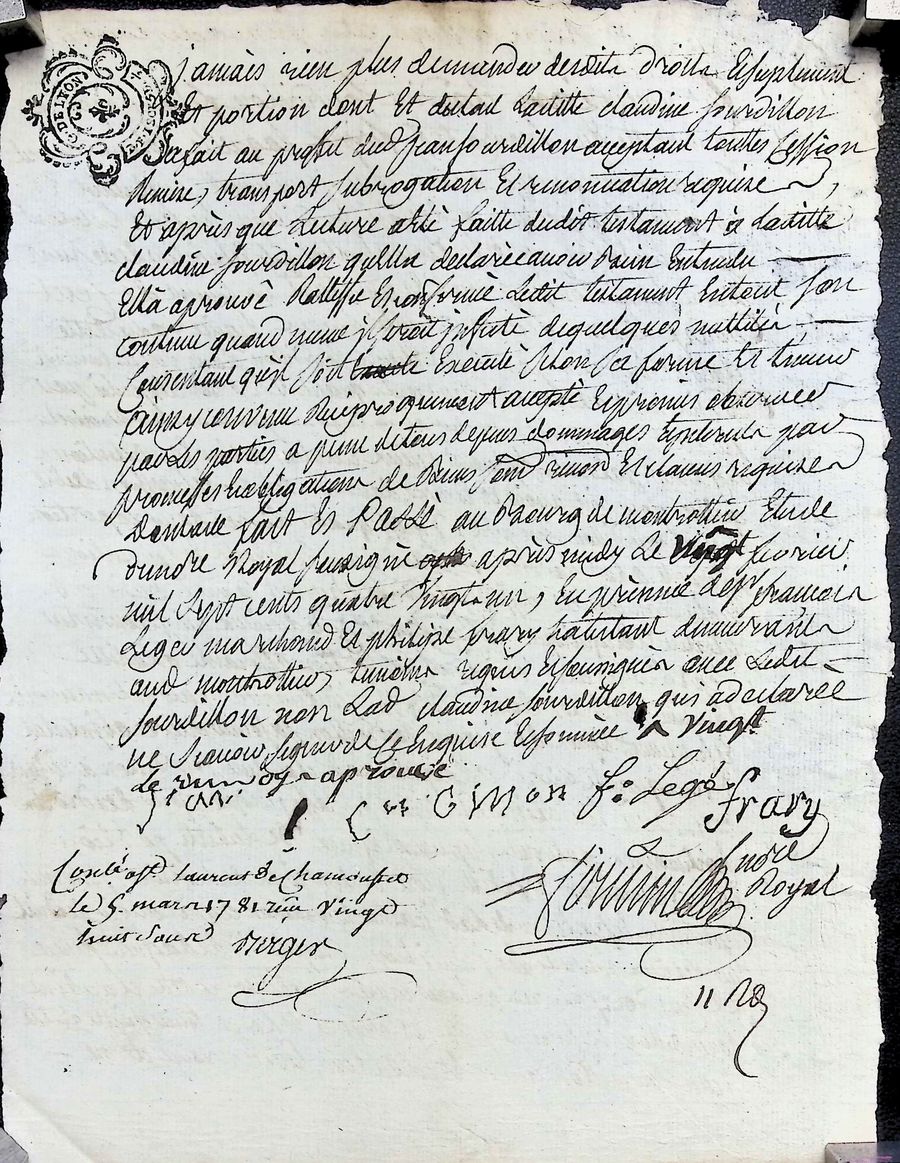 jamais rien plus demander desdits droits & suplement
et portion dont et du tout Laditte claudine fourdillon
a fait au proffit dud jean fourdillon acceptant touttes Cession
Remise, transport subrogation et renonciation requise,
Et après que Lecture a été faitte dudit testament à Laditte
claudine fourdillon qu'elle a declaré avoir Bien Entendu
Ella aprouvé Ratiffié et confirmé Ledit testament En tout son
contenu quand meme il seroit infecté de quelques nullités
Consentant qu'il soit Executé selon sa forme Et teneur
Ainsy convenu Reciproquement accepté Et promis observer
par les parties a peine de tous depens dommages Et interets par
promesses & obligations de Biens renon Et clauses requises
Dont acte fait Et Passé au Bourg de montrottier Etude
du nore Royal soussigné après midy Le vingt fevrier
mil sept cents quatre vingt un, En présence de sr françois
Leger marchand Et philipe frary habitant demeurants
aud montrottier, temoins requis Et soussignés avec Ledit
fourdillon non Lad claudine fourdillon qui a declarée
ne sçavoir signer de ce Enquise Et sommée vingt
aprouvé
f: Legé frary
nore Royal
Conlé a St Laurent de Chamousset
le 5 mars 1781 reçu vingt
huit sous
Berger
11